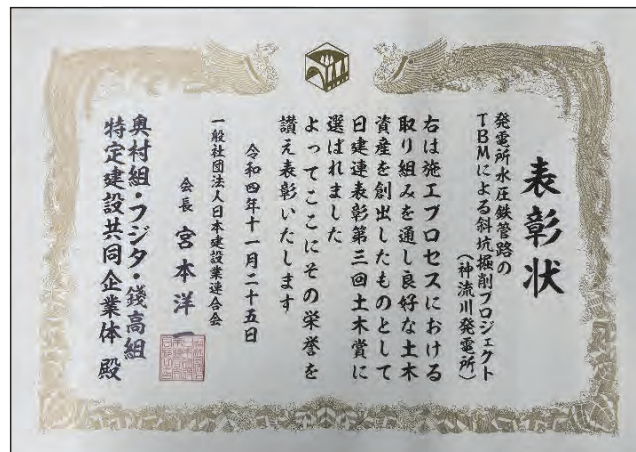 表彰状
発電所水圧鉄管路の
TBMによる斜坑掘削プロジェクト
(神流川発電所)
右は施工プロセスにおける
取り組みを通し良好な土木
資産を創出したものとして
日建連表彰第三回土木賞に
選ばれました
よってここにその栄誉を
讃え表彰いたします
令和四年十一月二十五日
一般社団法人日本建設業連合会
会長 宮本洋一
奥村組・フジタ・錢高組
特定建設共同企業体 殿